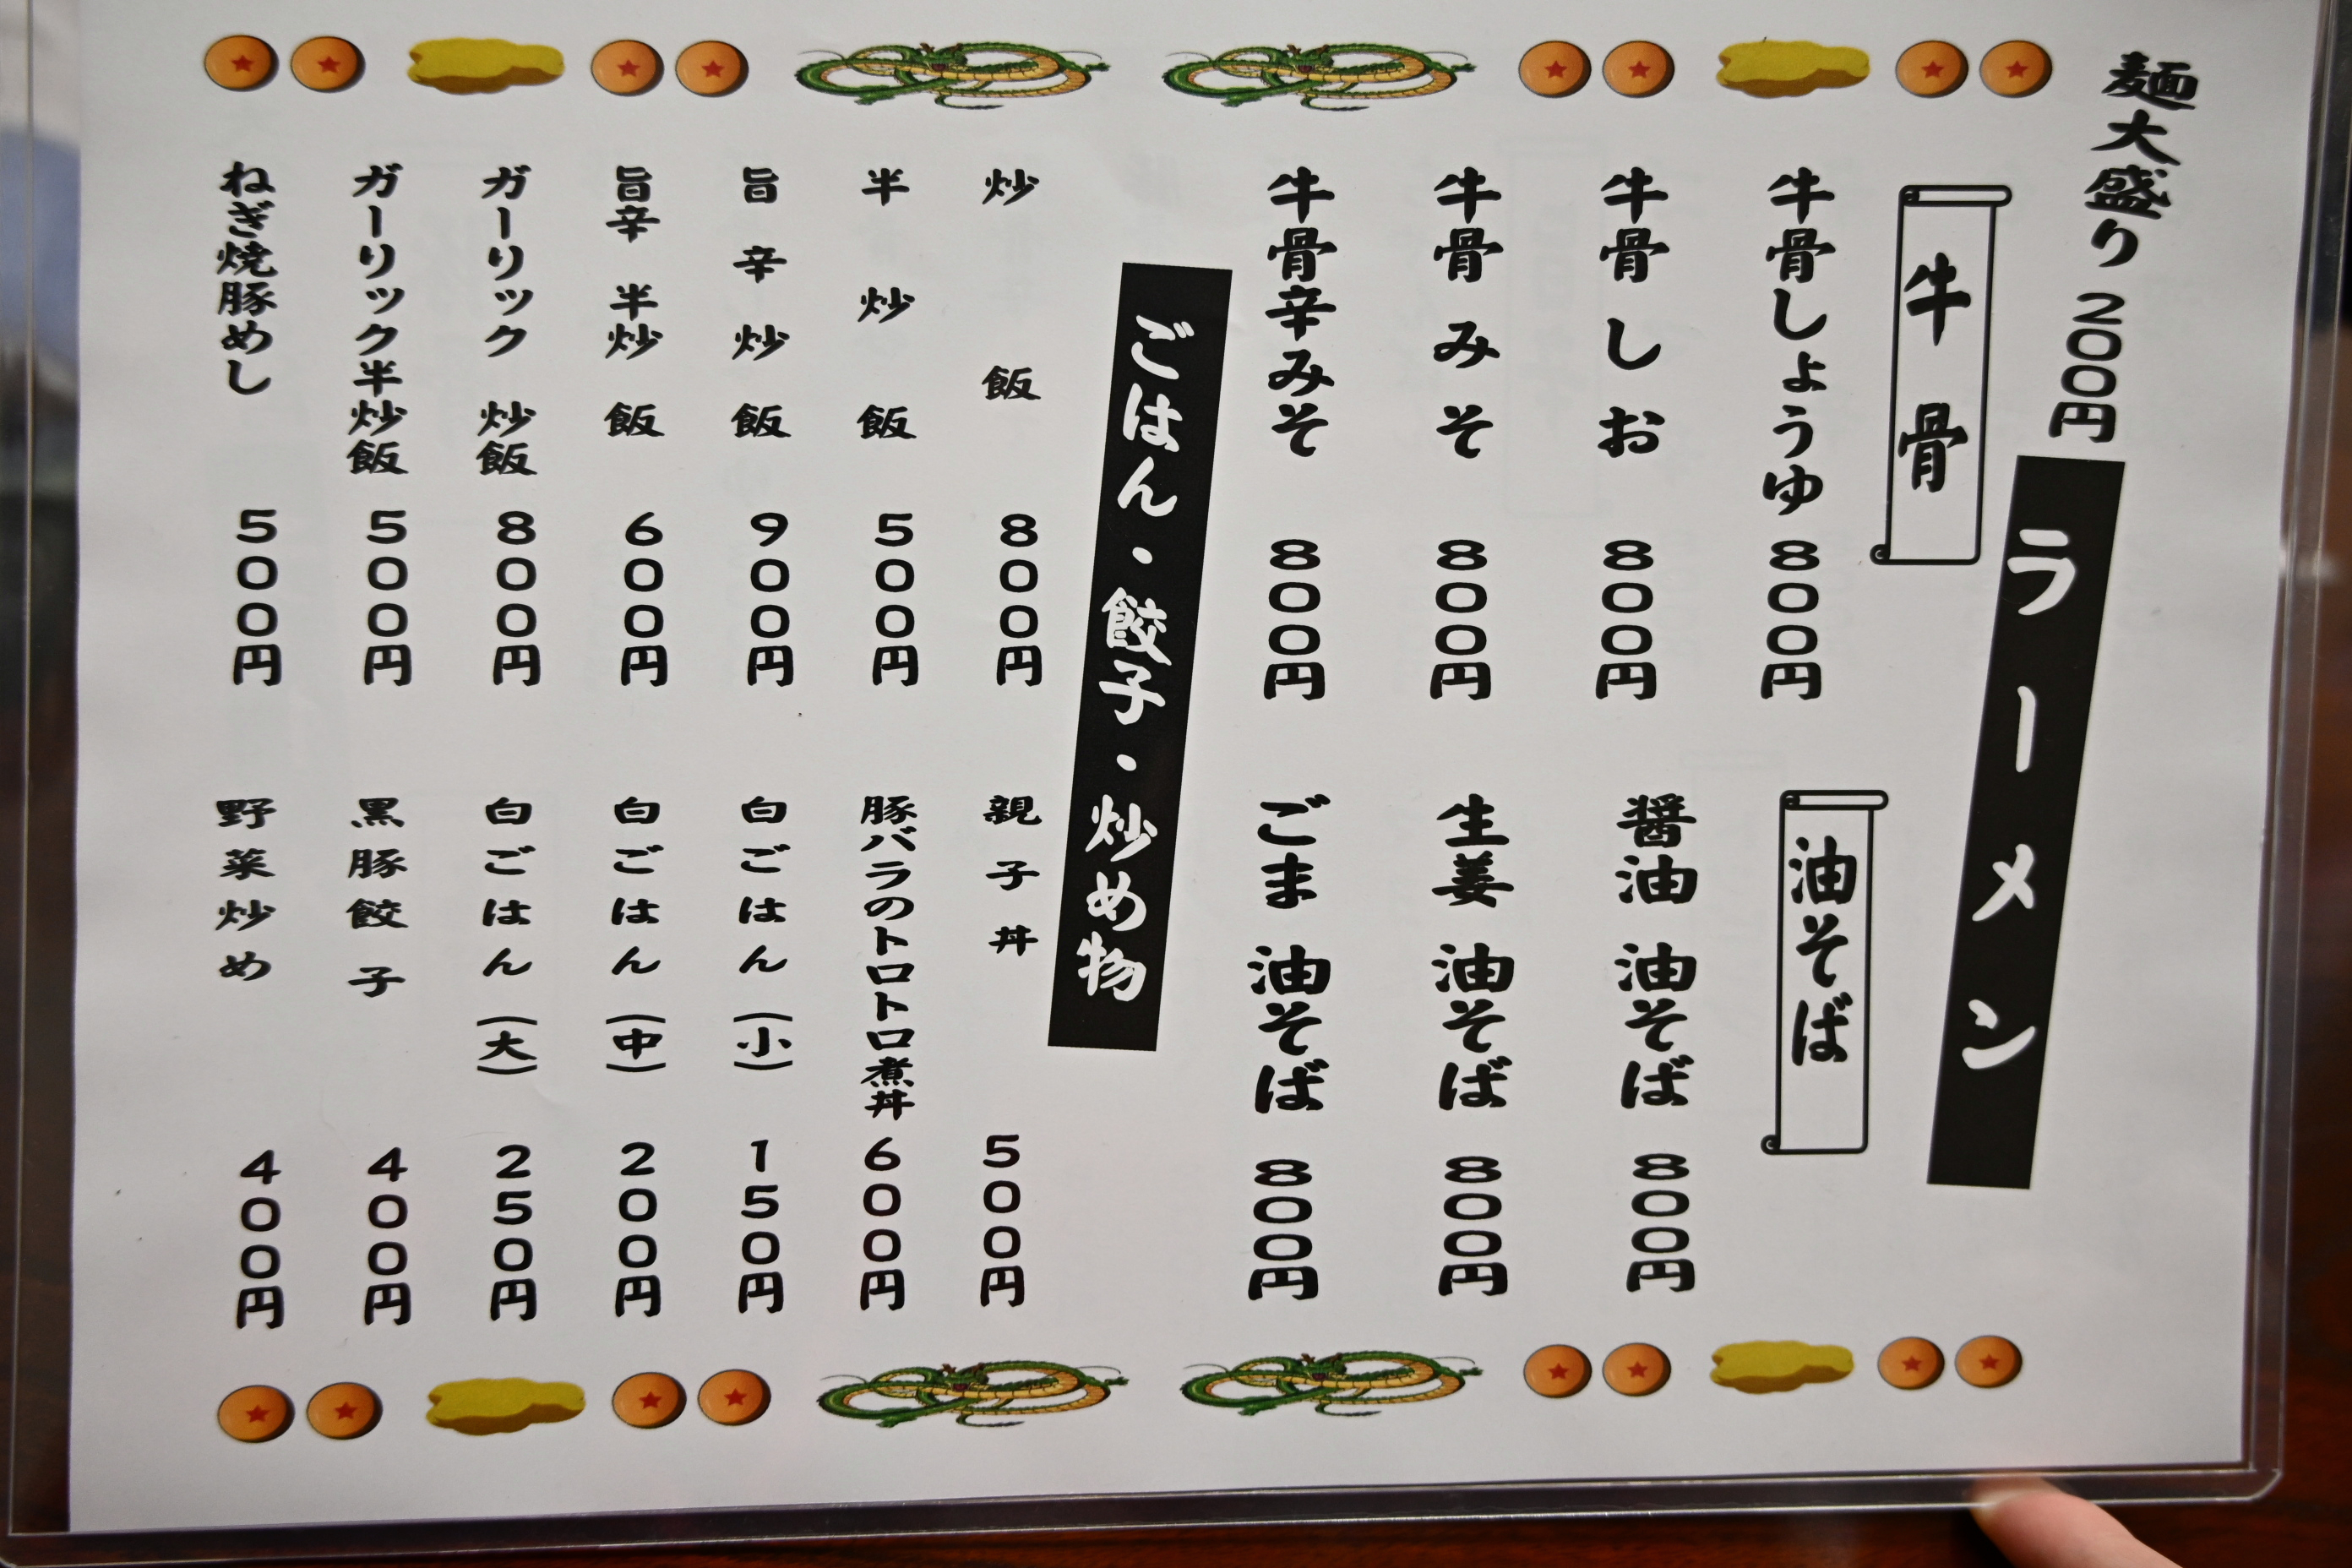 麺大盛り 200円
ラーメン
牛骨
牛骨しょうゆ 800円
牛骨しお 800円
牛骨みそ 800円
牛骨辛みそ 800円
油そば
醤油 油そば 800円
生姜 油そば 800円
ごま 油そば 800円
ごはん・餃子・炒め物
炒飯 800円
半炒飯 500円
旨辛炒飯 900円
旨辛 半炒飯 600円
ガーリック 炒飯 800円
ガーリック半炒飯 500円
ねぎ焼豚めし 500円
親子丼 500円
豚バラのトロトロ煮丼 600円
白ごはん(小) 150円
白ごはん(中) 200円
白ごはん(大) 250円
黒豚餃子 400円
野菜炒め 400円